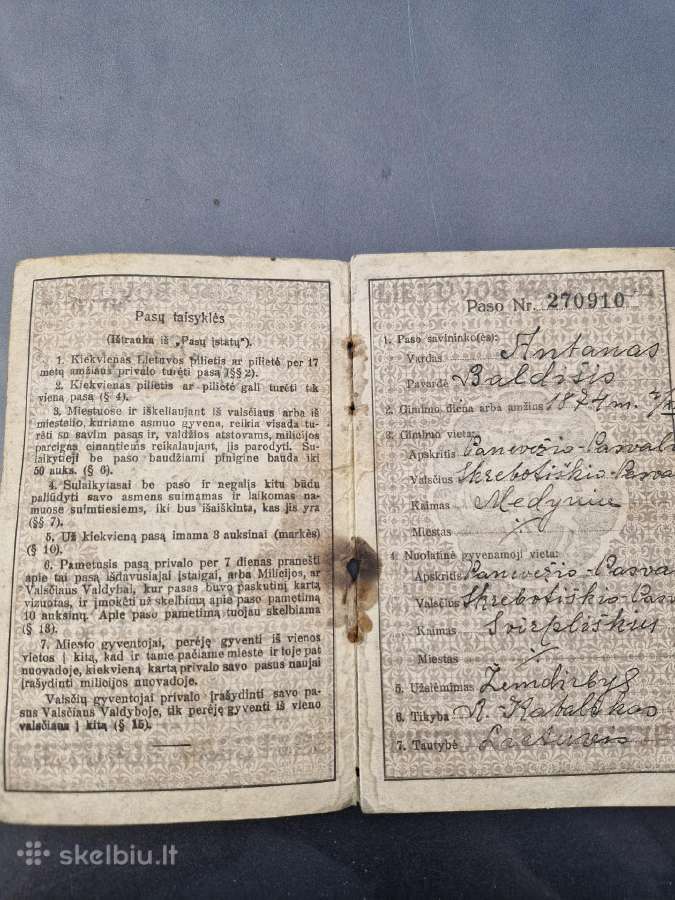 Pasų taisyklės
(Ištrauka iš „Pasų įstatų").
1. Kiekvienas Lietuvos pilietis ar pilietė per 17
metų amžiaus privalo turėti pasą (§§ 2).
2. Kiekvienas pilietis ar pilietė gali turėti tik
vieną pasą (§ 4).
3. Miestuose ir iškeliaujant iš valsčiaus arba iš
miestelio, kuriame asmuo gyvena, reikia visada tu-
rėti su savim pasas ir, valdžios atstovams, milicijos
pareigas einantiems reikalaujant, jis parodyti. Su-
laikytieji be paso baudžiami pinigine bauda iki
50 auks. (§ 6).
4. Sulaikytasai be paso ir negalįs kitu būdu
paliudyti savo asmens suimamas ir laikomas na-
muose suimtiesiems, iki bus išaiškinta, kas jis yra
(§§ 7).
5. Už kiekvieną pasą imama 3 auksinai (markės)
(§ 10).
6. Pametusis pasą privalo per 7 dienas pranešti
apie tai pasą išdavusiajai įstaigai, arba Milicijos, ar
Valsčiaus Valdybai, kur pasas buvo paskutinį kartą
vizuotas, ir įmokėti už skelbimą apie paso pametimą
10 auksinų. Apie paso pametimą tuojau skelbiama
(§ 13).
7. Miesto gyventojai, perėję gyventi iš vienos
vietos į kitą, kad ir tame pačiame mieste ir toje pat
nuovadoje, kiekvieną kartą privalo savo pasus naujai
įrašydinti milicijos nuovadoje.
Valsčių gyventojai privalo įrašydinti savo pa-
sus Valsčiaus Valdyboje, tik perėję gyventi iš vieno
valsčiaus į kitą (§ 15).
Paso Nr. 270910
1. Paso savininko(ės):
Vardas Antanas
Pavardė Baldišis
2. Gimimo diena arba amžius 1874 m.
3. Gimimo vieta:
Apskritis Panevėžio-Pasval
Valsčius Skrebotiškio-Pasva
Kaimas Medynių
Miestas
4. Nuolatinė gyvenamoji vieta:
Apskritis Panevėžio-Pasva
Valsčius Skrebotiškio-Pas
Kaimas Svirpliškių
Miestas
5. Užsiėmimas Žemdirbys
6. Tikyba R. Katalikas
7. Tautybė Lietuvis
skelbiu.lt